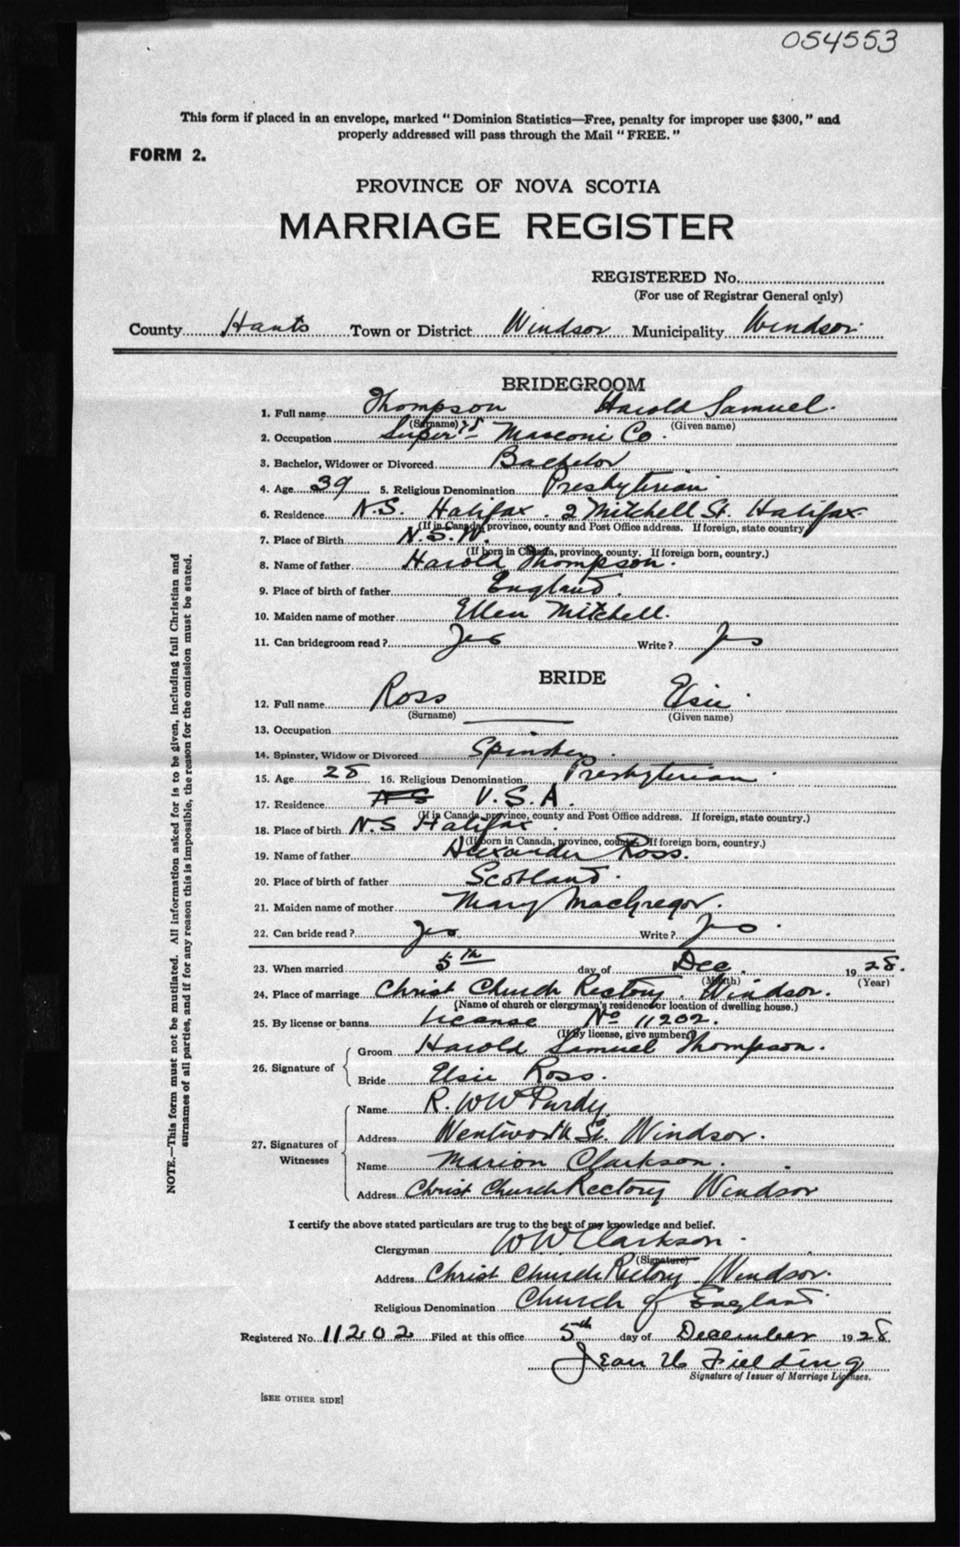 054553
This form if placed in an envelope, marked "Dominion Statistics—Free, penalty for improper use $300," and
properly addressed will pass through the Mail "FREE."
FORM 2.
PROVINCE OF NOVA SCOTIA
MARRIAGE REGISTER
REGISTERED No.
(For use of Registrar General only)
County Hants Town or District Windsor Municipality Windsor.
BRIDEGROOM
1. Full name Thompson Harold Samuel.
(Surname) (Given name)
2. Occupation Super Marconi Co.
3. Bachelor, Widower or Divorced Bachelor
4. Age 39 5. Religious Denomination Presbyterian
6. Residence N.S. Halifax. 2 Mitchell St. Halifax
(If in Canada, province, county and Post Office address. If foreign, state country)
7. Place of Birth N.S.W.
(If born in Canada, province, county. If foreign born, country.)
8. Name of father Harold Thompson.
9. Place of birth of father England.
10. Maiden name of mother Ellen Mitchell.
11. Can bridegroom read? Yes Write? Yes
BRIDE
12. Full name Ross Elsie.
(Surname) (Given name)
13. Occupation
14. Spinster, Widow or Divorced Spinster.
15. Age 28 16. Religious Denomination Presbyterian.
17. Residence NS U.S.A.
(If in Canada, province, county and Post Office address. If foreign, state country.)
18. Place of birth N.S Halifax.
(If born in Canada, province, county. If foreign born, country.)
19. Name of father Alexander Ross.
20. Place of birth of father Scotland.
21. Maiden name of mother Mary MacGregor.
22. Can bride read? Yes Write? Yes.
23. When married 5th day of Dec. 1928.
(Month) (Year)
24. Place of marriage Christ Church Rectory. Windsor.
(Name of church or clergyman's residence or location of dwelling house.)
25. By license or banns License No 11202.
(If by license, give number)
26. Signature of Groom Harold Samuel Thompson.
Bride Elsie Ross.
27. Signatures of Witnesses Name R. WW Purdy
Address Wentworth St. Windsor.
Name Marion Clarkson.
Address Christ Church Rectory Windsor
I certify the above stated particulars are true to the best of my knowledge and belief.
Clergyman WW Clarkson.
(Signature)
Address Christ Church Rectory. Windsor.
Religious Denomination Church of England.
Registered No. 11202 Filed at this office 5th day of December 1928
Jean Fielding
Signature of Issuer of Marriage Licenses.
[SEE OTHER SIDE]
NOTE.—This form must not be mutilated. All information asked for is to be given, including full Christian and
surnames of all parties, and if for any reason this is impossible, the reason for the omission must be stated.